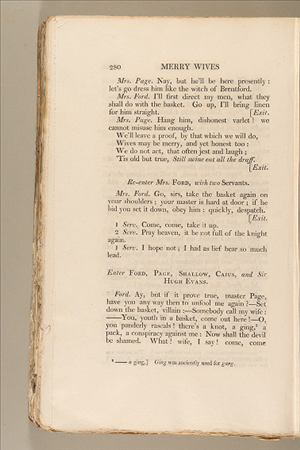 280 MERRY WIVES
Mrs. Page. Nay, but he'll be here presently:
let's go dress him like the witch of Brentford.
Mrs. Ford. I'll first direct my men, what they
shall do with the basket. Go up, I'll bring linen
for him straight. [Exit.
Mrs. Page. Hang him, dishonest varlet! we
cannot misuse him enough.
We'll leave a proof, by that which we will do,
Wives may be merry, and yet honest too:
We do not act, that often jest and laugh;
'Tis old but true, Still swine eat all the draff.
[Exit.
Re-enter Mrs. FORD, with two Servants.
Mrs. Ford. Go, sirs, take the basket again on
your shoulders; your master is hard at door; if he
bid you set it down, obey him: quickly, despatch.
[Exit.
1 Serv. Come, come, take it up.
2 Serv. Pray heaven, it be not full of the knight
again.
1 Serv. I hope not; I had as lief bear so much
lead.
Enter FORD, PAGE, SHALLOW, CAIUS, and Sir
HUGH EVANS.
Ford. Ay, but if it prove true, master Page,
have you any way then to unfool me again?—Set
down the basket, villain:—Somebody call my wife:
——You, youth in a basket, come out here!—O,
you panderly rascals! there's a knot, a ging,* a
pack, a conspiracy against me: Now shall the devil
be shamed. What! wife, I say! come, come
* —— a ging,] Ging was anciently used for gang.